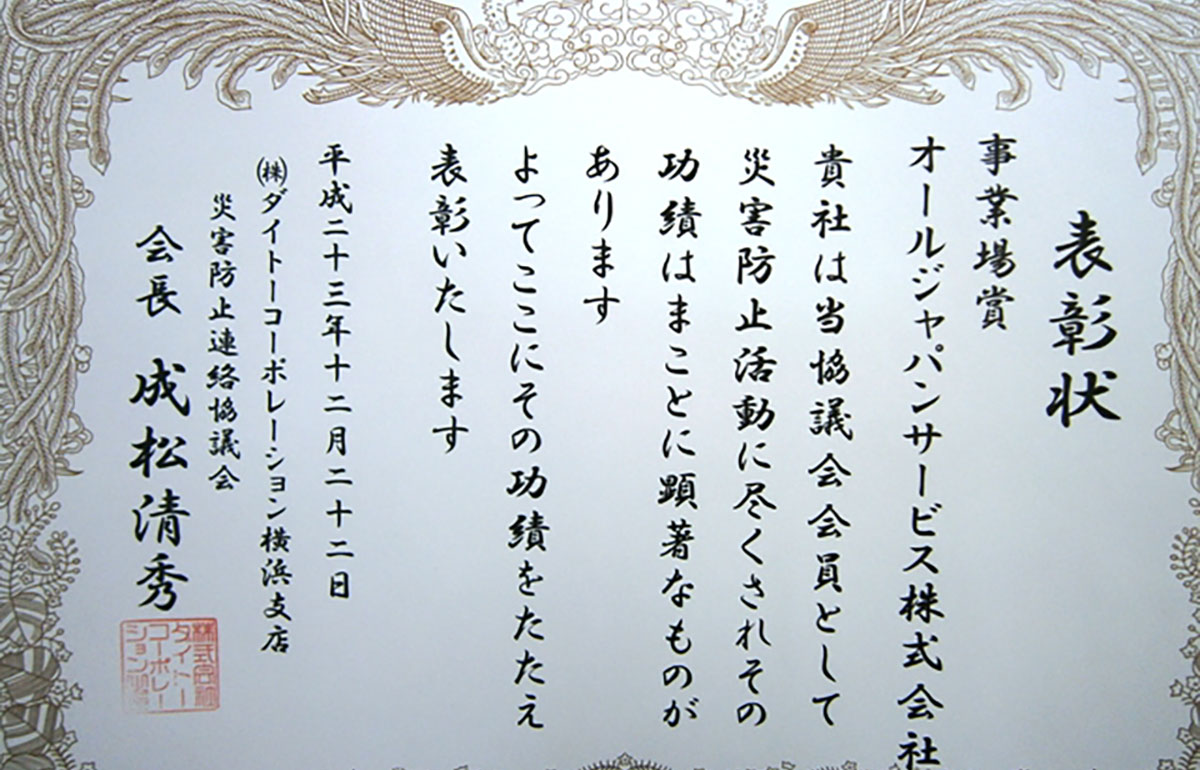 表彰状
事業場賞
オールジャパンサービス株式会社
貴社は当協議会会員として
災害防止活動に尽くされその
功績はまことに顕著なものが
あります
よってここにその功績をたたえ
表彰いたします
平成二十三年十二月二十二日
㈱ダイトーコーポレーション横浜支店
災害防止連絡協議会
会長 成松清秀
株式会社
ダイトー
コーポレー
ション